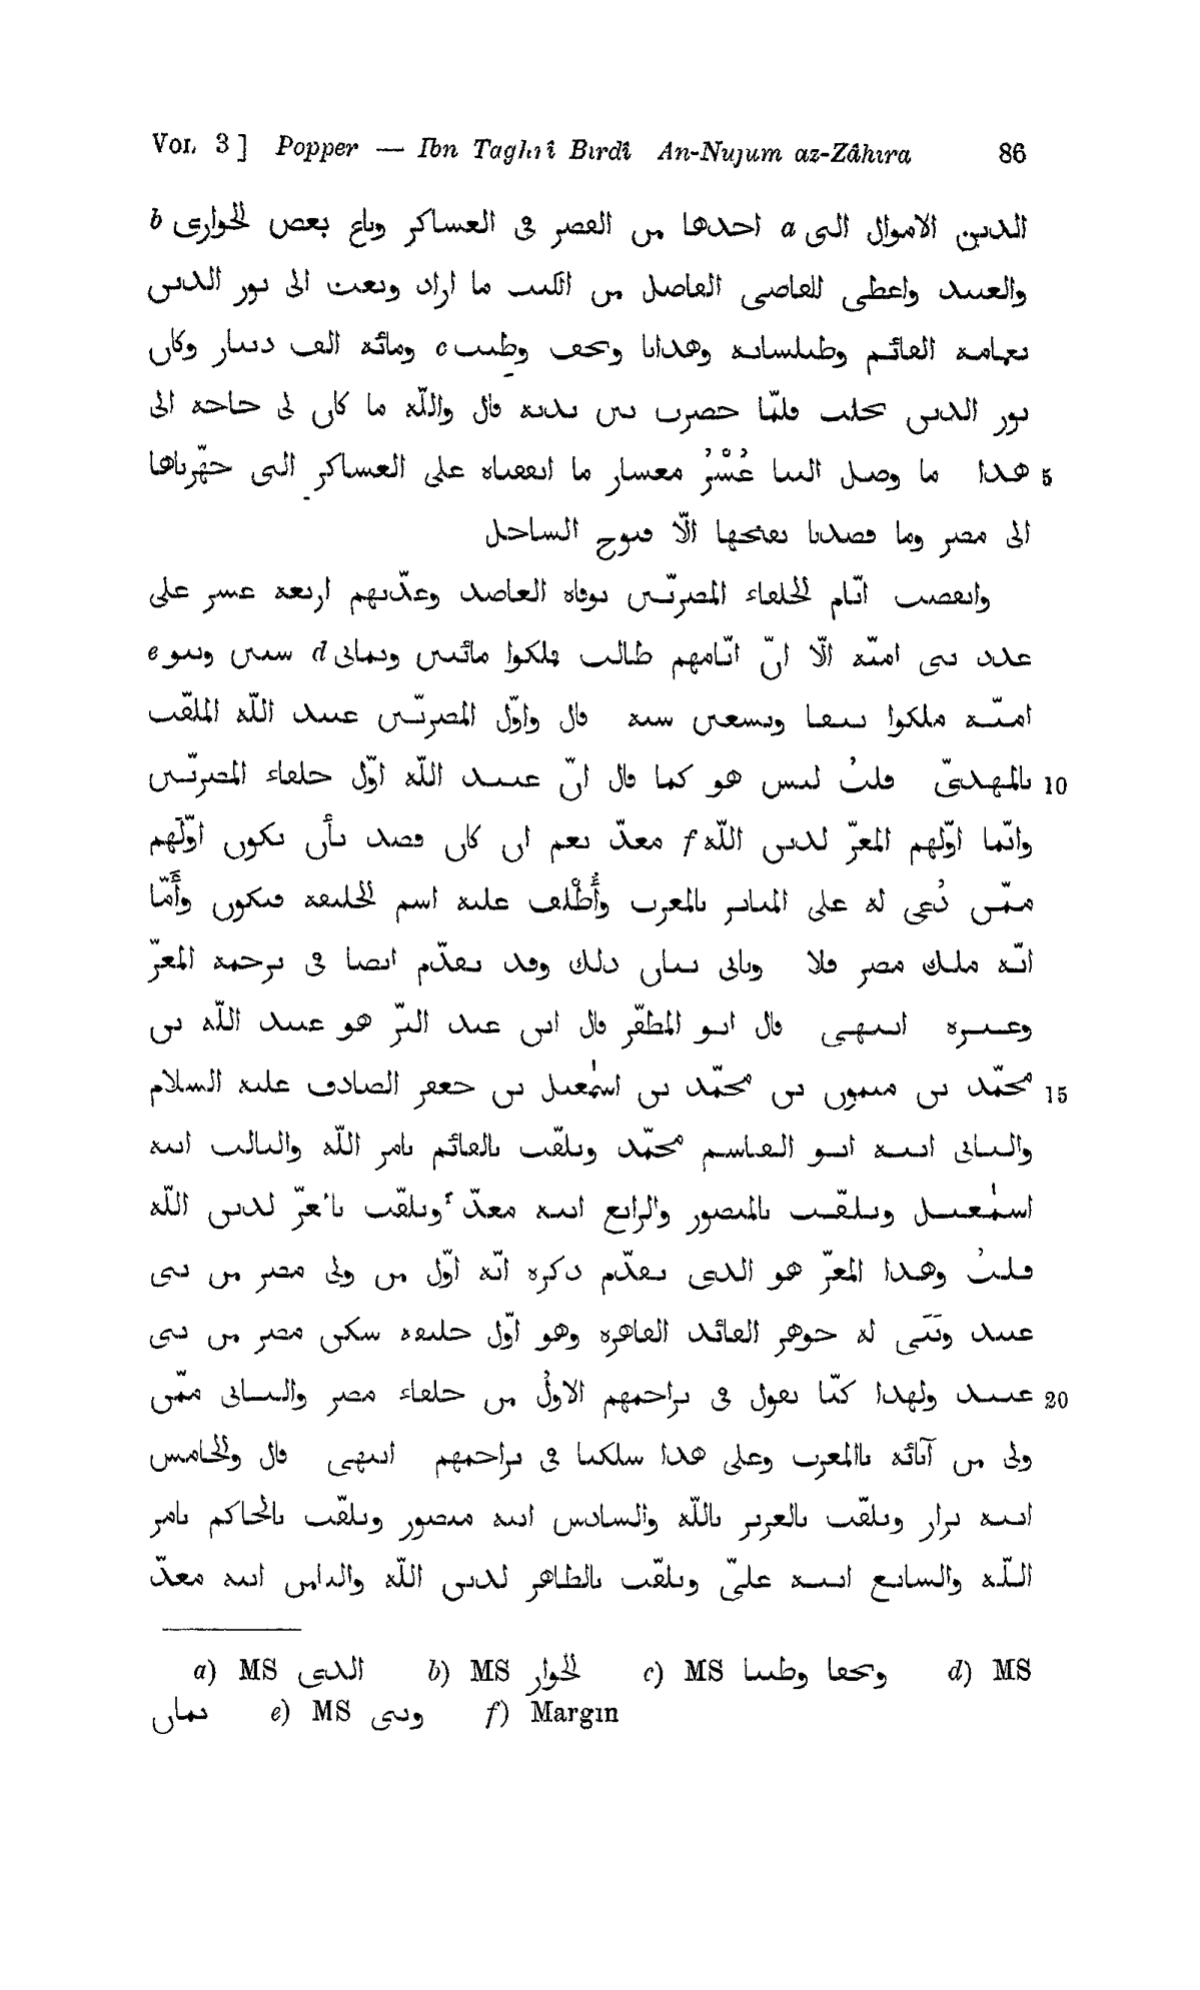 Vol. 3] Popper — Ibn Taghrî Birdî An-Nujum az-Zâhira 86
الدين الاموال التى a احدها من القصر فى العساكر وباع بعض الجوارى b
والعبيد واعطى للقاضى الفاضل من الكتب ما اراد وبعث الى نور الدين
بعمامة القائم وطيلسانه وهدايا وتحف وطيب c ومائة الف دينار وكان
نور الدين بحلب فلمّا حضرت بين يديه قال واللّه ما كان لى حاجة الى
5 هذا ما وصل الينا عُشْرُ معشار ما انفقناه على العساكر التى جهّزناها
الى مصر وما قصدنا بفتحها الّا فتوح الساحل
وانقضت ايّام الخلفاء المصريّين بوفاة العاضد وعدّتهم اربعة عشر على
عدد بنى اميّة الّا انّ ايّامهم طالت فملكوا مائتين وثمانى d سنين وبنو e
اميّة ملكوا نيفا وتسعين سنة قال واوّل المصريّين عبيد اللّه الملقّب
10 بالمهدىّ قلتُ ليس هو كما قال انّ عبيد اللّه اوّل خلفاء المصريّين
وانّما اوّلهم المعزّ لدين اللّه f معدّ نعم ان كان قصد بأن يكون اوّلهم
ممّن دُعى له على المنابر بالمغرب وأُطْلق عليه اسم الخليفة فيكون وأَمّا
انّه ملك مصر فلا وياتى بيان ذلك وقد تقدّم ايضا فى ترجمة المعزّ
وغيره انتهى قال ابو المظفّر قال ابن عبد البرّ هو عبيد اللّه بن
15 محمّد بن ميمون بن محمّد بن اسمٰعيل بن جعفر الصادق عليه السلام
والثانى ابنه ابو القاسم محمّد ويلقّب بالقائم بامر اللّه والثالث ابنه
اسمٰعيل ويلقّب بالمنصور والرابع ابنه معدّ ويلقّب بالمعزّ لدين اللّه
قلتُ وهذا المعزّ هو الذى تقدّم ذكره انّه اوّل من ولى مصر من بنى
عبيد وبَنَى له جوهر القائد القاهرة وهو اوّل خليفة سكن مصر من بنى
20 عبيد ولهذا كنّا نقول فى تراجمهم الاوّل من خلفاء مصر والثانى ممّن
ولى من آبائه بالمغرب وعلى هذا سلكنا فى تراجمهم انتهى قال والخامس
ابنه نزار ويلقّب بالعزيز باللّه والسادس ابنه منصور ويلقّب بالحاكم بامر
اللّه والسابع ابنه علىّ ويلقّب بالظاهر لدين اللّه والثامن ابنه معدّ
a) MS الذى b) MS الجوار c) MS وتحفا وطيبا d) MS
ثمان e) MS وبنى f) Margin